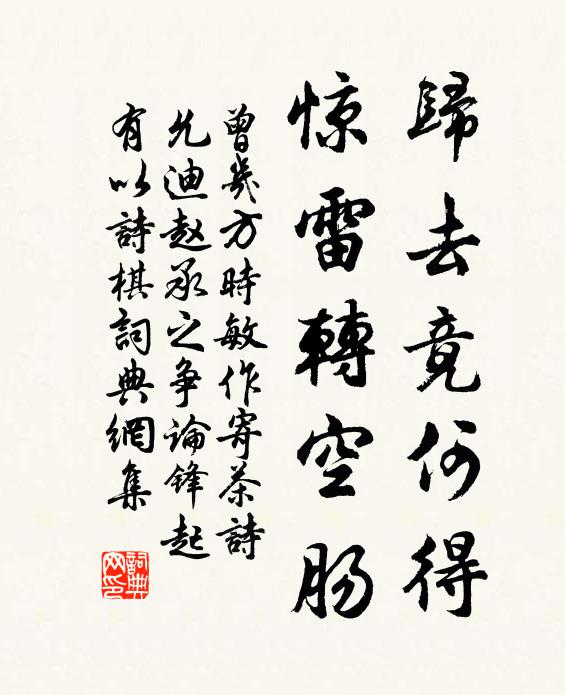 歸去竟何得
惊雷轉空肠
曾幾方時敏作寄茶詩
允迪赵承之争論鋒起
有以詩棋詞典網集
詞典
网印